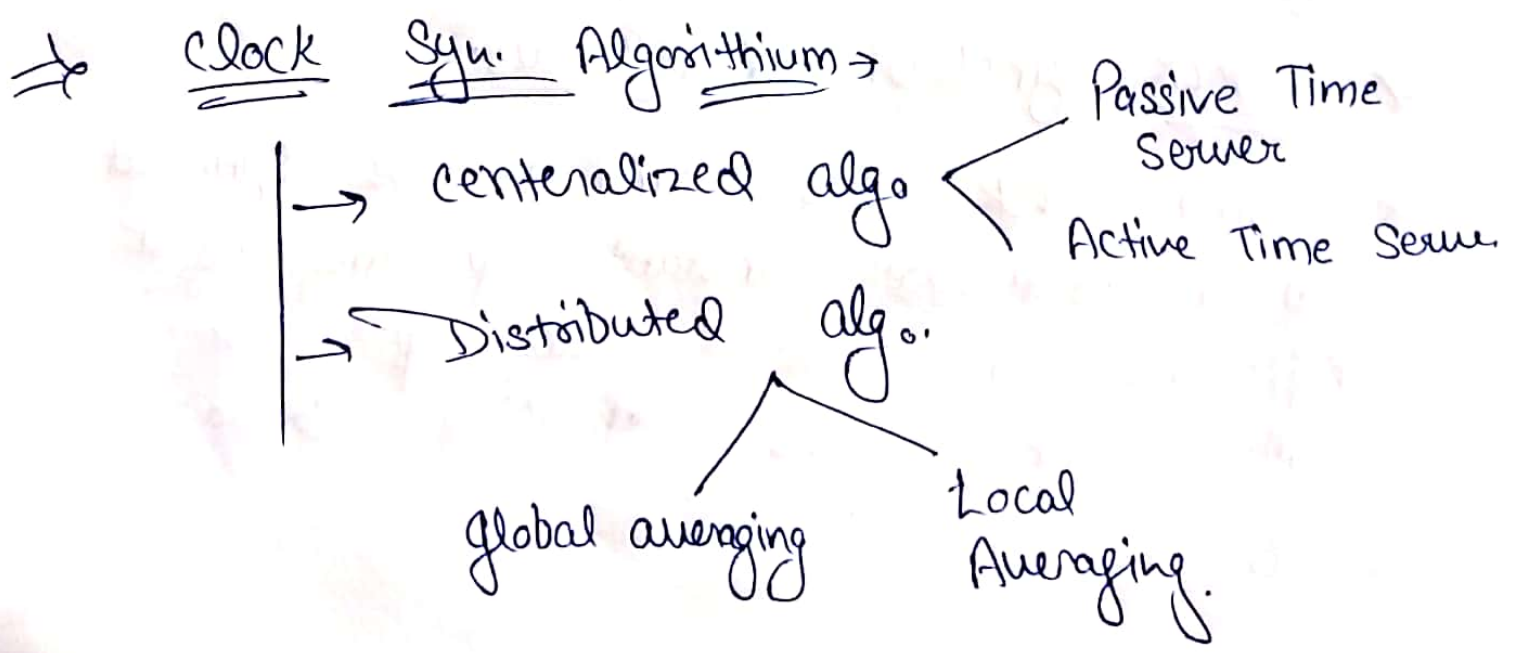 ⇒ Clock Syn. Algorithium →
→ centeralized algo
Passive Time
Server
Active Time Serve.
→ Distributed algo.
global averaging
Local
Averaging.